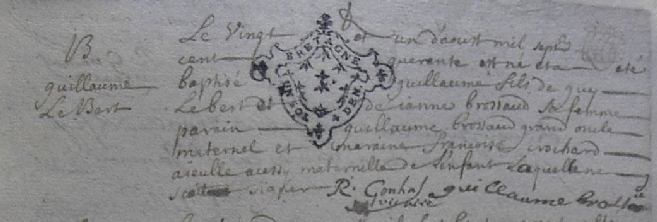 B
guillaume
Le Bert
Le vingt et un d'aoust mil sept
cent quarante est né et a été
baptisé guillaume fils de guy
Le bert et de janne brossaud sa femme
parain guillaume brossaud grand oncle
maternel et maraine francoise crochard
aieulle aussy maternelle de l'enfant laquelle ne
signer R. Gouhal guillaume brossau
BRETAGNE